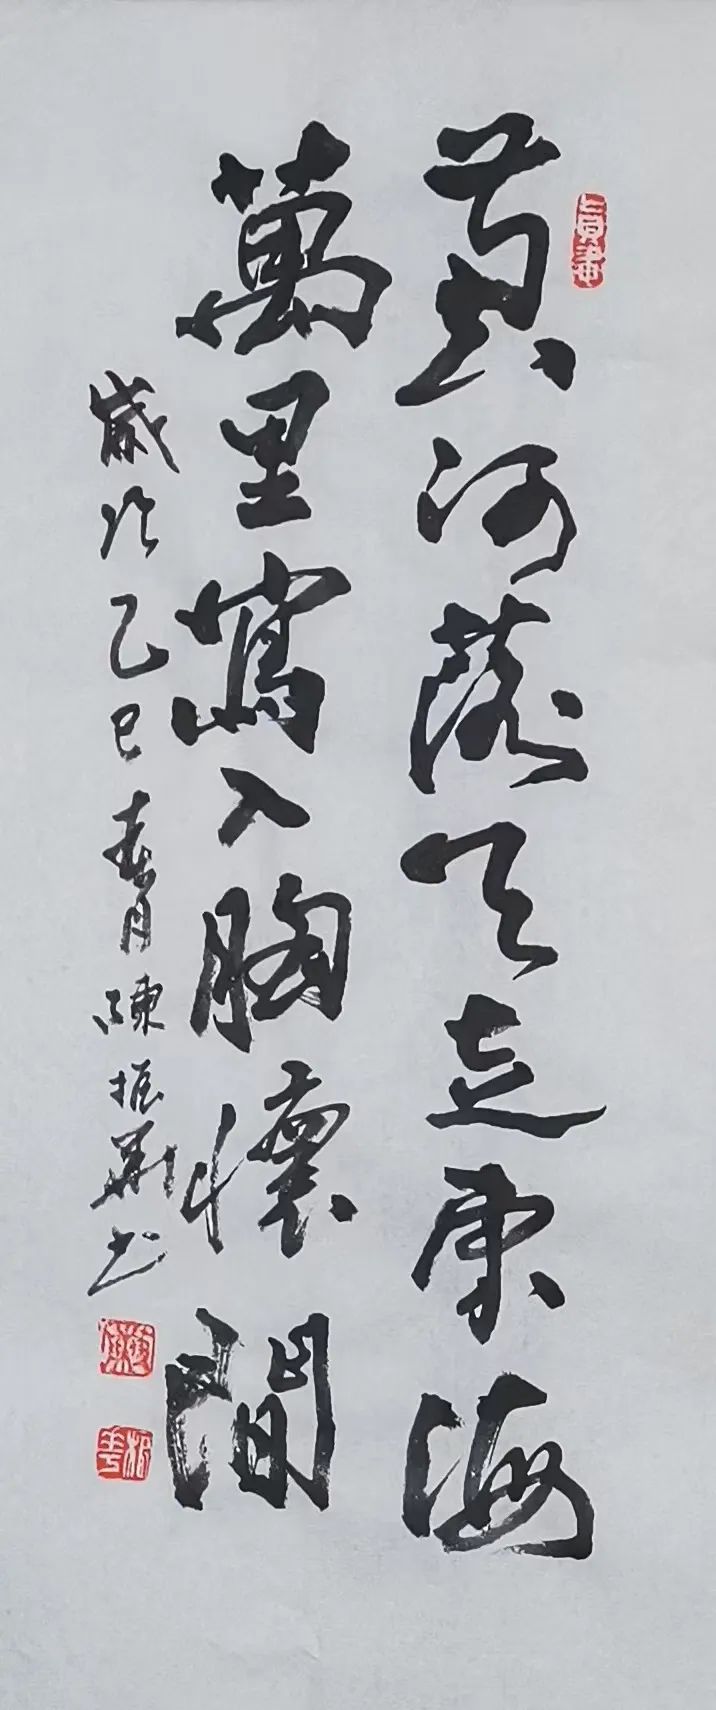 黄河落天走東海
萬里寫入胸懷間
歲次乙巳春月陳振
書